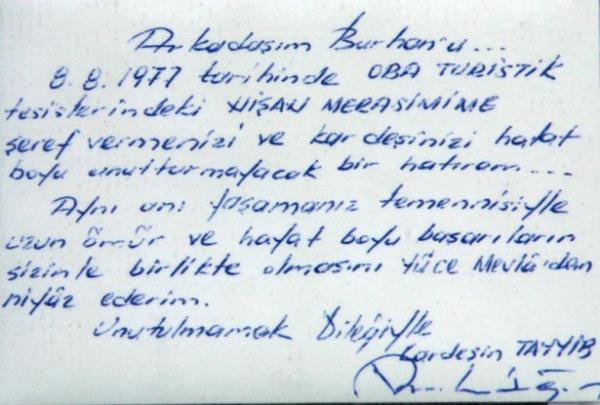 Arkadaşım Burhan'a...
8.8.1977 tarihinde OBA TURİSTİK
tesislerindeki NİŞAN MERASİMİME
şeref vermenizi ve kardeşinizi hayat
boyu unutturmayacak bir hatıram...
Aynı anı yaşamanız temennisiyle
uzun ömür ve hayat boyu başarıların
sizinle birlikte olmasını Yüce Mevlâ'dan
niyâz ederim.
Unutulmamak Dileğiyle
Kardeşin TAYYİB